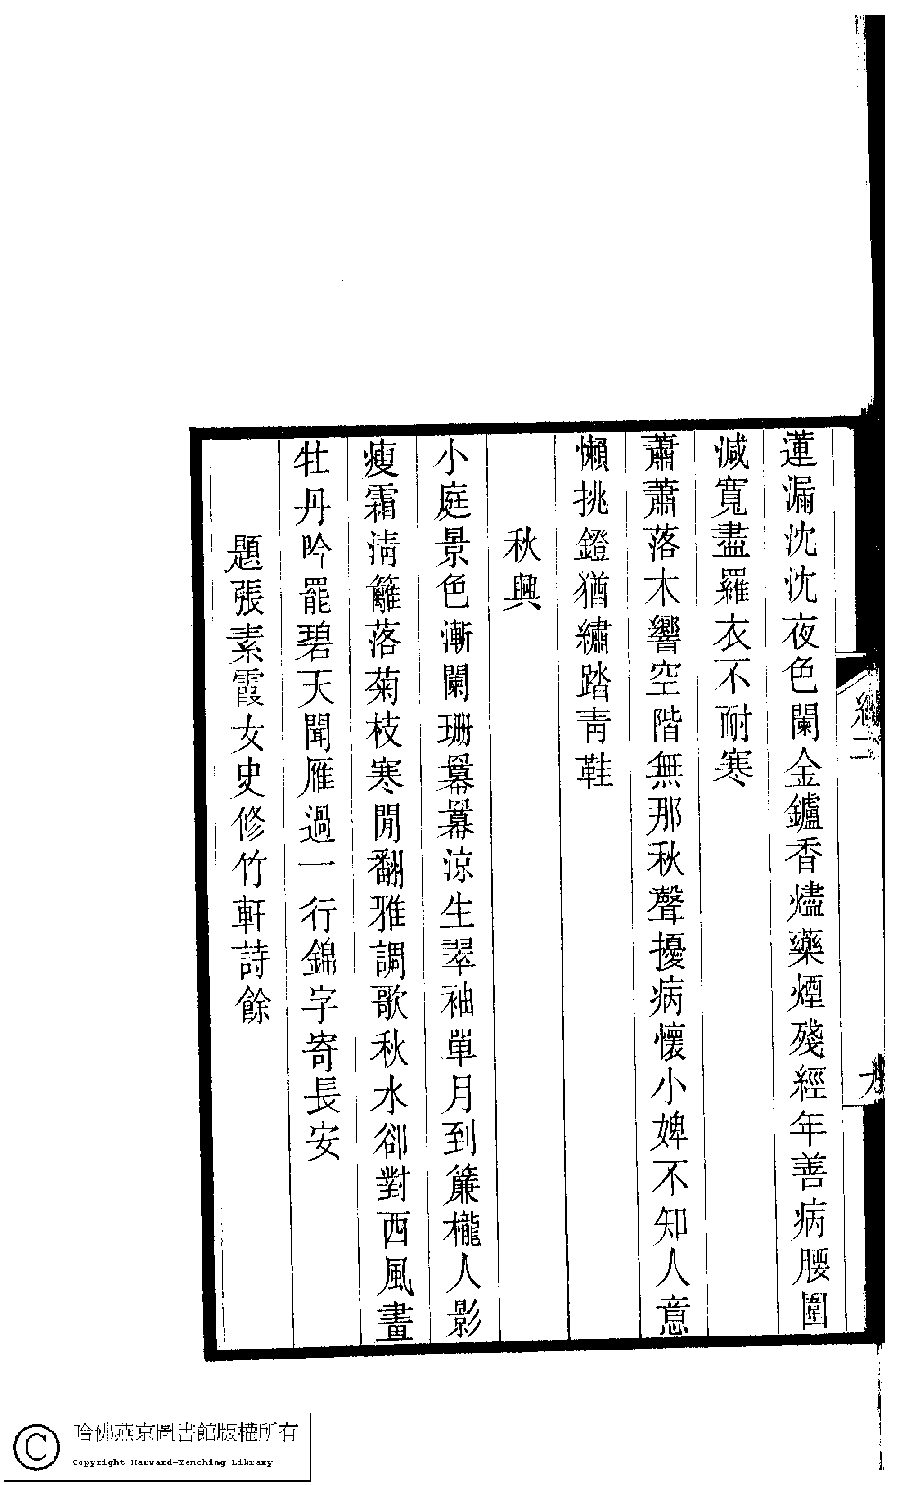 蓮漏沈沈夜色闌金鑪香燼藥煙殘經年善病腰圍
減寬盡羅衣不耐寒
蕭蕭落木響空階無那秋聲擾病懷小婢不知人意
懶挑鐙猶繡踏青鞋
秋興
小庭景色漸闌珊羃羃涼生翠袖單月到簾櫳人影
瘦霜淸籬落菊枝寒閒翻雅調歌秋水郤對西風畫
牡丹吟罷碧天聞雁過一行錦字寄長安
題張素霞女史修竹軒詩餘
哈佛燕京圖書館版權所有
Copyright Harvard-Yenching Library